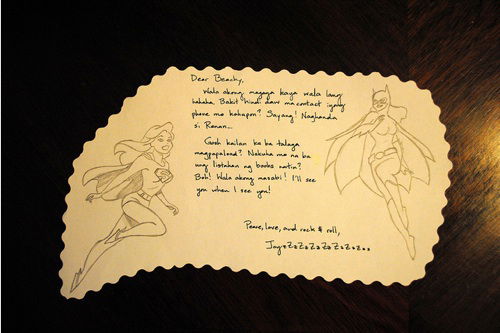 Dear Beachy,
Wala akong magawa kaya wala lang
hahaha. Bakit hindi daw macontact iyong
phone mo kahapon? Sayang! Naghanda
si Ronan...
Gosh kailan ka ba talaga
magpapaload? Nakuha mo na ba
iyong listahan ng books natin?
Bah! Wala akong masabi! I'll see
you when I see you!
Peace, love, and rock & roll,